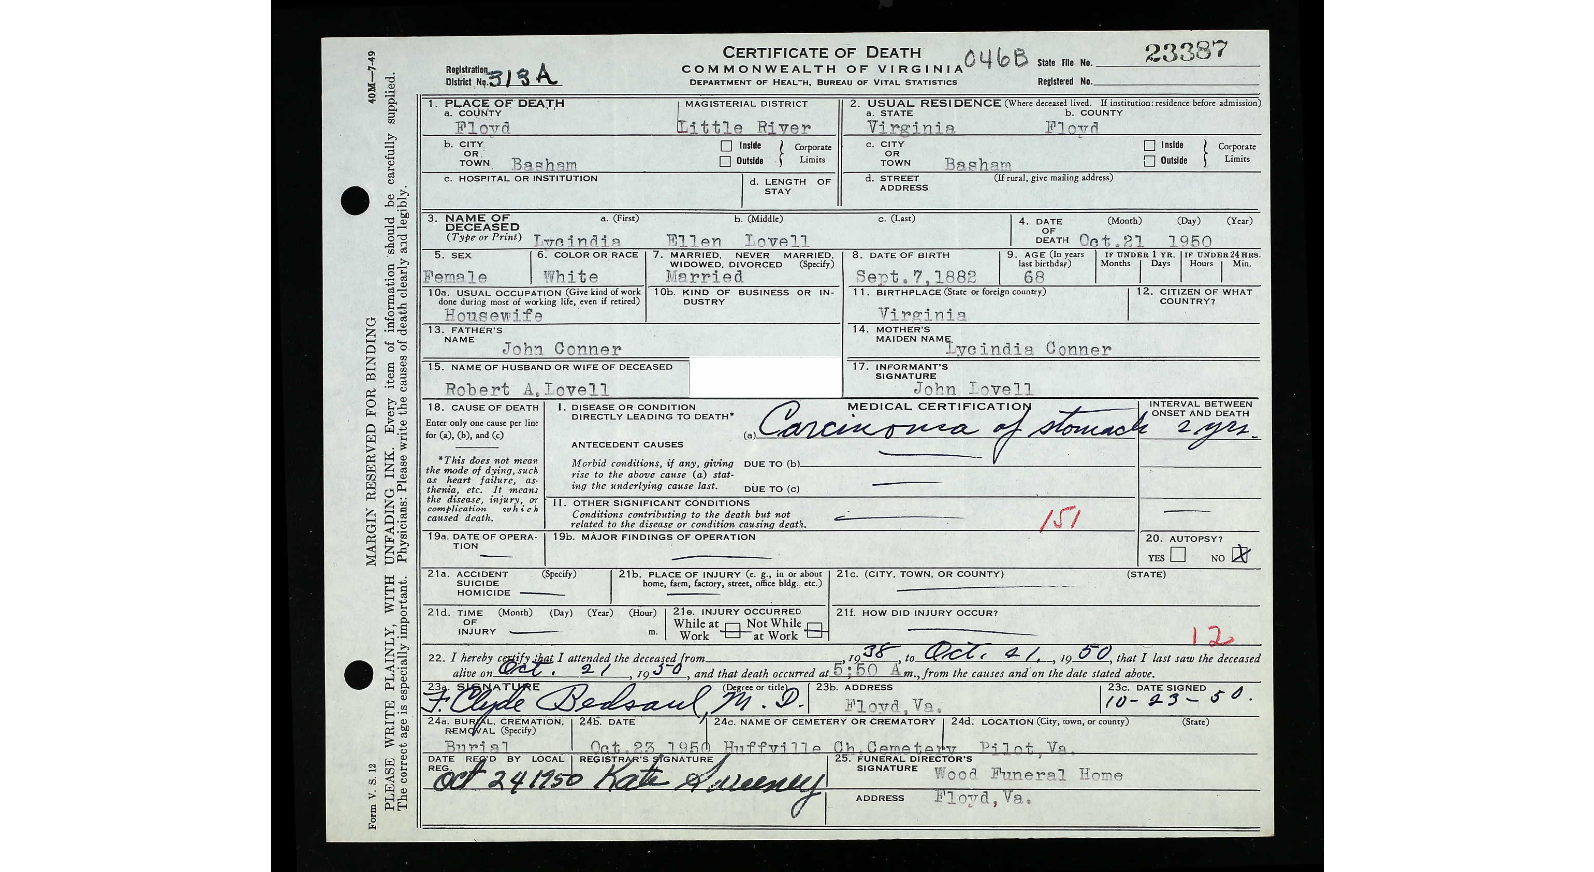 CERTIFICATE OF DEATH
COMMONWEALTH OF VIRGINIA
DEPARTMENT OF HEALTH, BUREAU OF VITAL STATISTICS
Registration District No. 313A
046B
State File No. 23387
Registered No.
40M—7-49
MARGIN RESERVED FOR BINDING
PLEASE WRITE PLAINLY, WITH UNFADING INK. Every item of information should be carefully supplied.
The correct age is especially important. Physicians: Please write the causes of death clearly and legibly.
Form V. S. 12
1. PLACE OF DEATH
a. COUNTY
Floyd
MAGISTERIAL DISTRICT
Little River
2. USUAL RESIDENCE (Where deceased lived. If institution: residence before admission)
a. STATE
Virginia
b. COUNTY
Floyd
b. CITY OR TOWN Basham
Inside
Outside
Corporate Limits
c. CITY OR TOWN Basham
Inside
Outside
Corporate Limits
c. HOSPITAL OR INSTITUTION
d. LENGTH OF STAY
d. STREET ADDRESS
(If rural, give mailing address)
3. NAME OF DECEASED (Type or Print)
a. (First)
b. (Middle)
c. (Last)
Lycindia Ellen Lovell
4. DATE OF DEATH
(Month) (Day) (Year)
Oct.21 1950
5. SEX
Female
6. COLOR OR RACE
White
7. MARRIED, NEVER MARRIED, WIDOWED, DIVORCED (Specify)
Married
8. DATE OF BIRTH
Sept.7,1882
9. AGE (In years last birthday)
68
IF UNDER 1 YR.
Months Days
IF UNDER 24 HRS.
Hours Min.
10a. USUAL OCCUPATION (Give kind of work done during most of working life, even if retired)
Housewife
10b. KIND OF BUSINESS OR INDUSTRY
11. BIRTHPLACE (State or foreign country)
Virginia
12. CITIZEN OF WHAT COUNTRY?
13. FATHER'S NAME
John Conner
14. MOTHER'S MAIDEN NAME
Lycindia Conner
15. NAME OF HUSBAND OR WIFE OF DECEASED
Robert A.Lovell
17. INFORMANT'S SIGNATURE
John Lovell
18. CAUSE OF DEATH
Enter only one cause per line for (a), (b), and (c)
*This does not mean the mode of dying, such as heart failure, asthenia, etc. It means the disease, injury, or complication which caused death.
MEDICAL CERTIFICATION
I. DISEASE OR CONDITION DIRECTLY LEADING TO DEATH*
(a) Carcinoma of stomach
INTERVAL BETWEEN ONSET AND DEATH
2 yrs.
ANTECEDENT CAUSES
Morbid conditions, if any, giving rise to the above cause (a) stating the underlying cause last.
DUE TO (b)
DUE TO (c)
II. OTHER SIGNIFICANT CONDITIONS
Conditions contributing to the death but not related to the disease or condition causing death.
151
19a. DATE OF OPERATION
19b. MAJOR FINDINGS OF OPERATION
20. AUTOPSY?
YES NO X
21a. ACCIDENT SUICIDE HOMICIDE (Specify)
21b. PLACE OF INJURY (e. g., in or about home, farm, factory, street, office bldg., etc.)
21c. (CITY, TOWN, OR COUNTY) (STATE)
21d. TIME OF INJURY (Month) (Day) (Year) (Hour) m.
21e. INJURY OCCURRED
While at Work Not While at Work
21f. HOW DID INJURY OCCUR?
12
22. I hereby certify that I attended the deceased from , 1938, to Oct. 21, 1950, that I last saw the deceased
alive on Oct. 21, 1950, and that death occurred at 5:50 A m., from the causes and on the date stated above.
23a. SIGNATURE (Degree or title)
F. Clyde Bedsaul, M.D.
23b. ADDRESS
Floyd,Va.
23c. DATE SIGNED
10-23-50.
24a. BURIAL, CREMATION, REMOVAL (Specify)
Burial
24b. DATE
Oct.23 1950
24c. NAME OF CEMETERY OR CREMATORY
Huffville Ch.Cemetery
24d. LOCATION (City, town, or county) (State)
Pilot,Va.
DATE REC'D BY LOCAL REG.
Oct 24 1950
REGISTRAR'S SIGNATURE
Kate Sweeney
25. FUNERAL DIRECTOR'S SIGNATURE
Wood Funeral Home
ADDRESS
Floyd,Va.